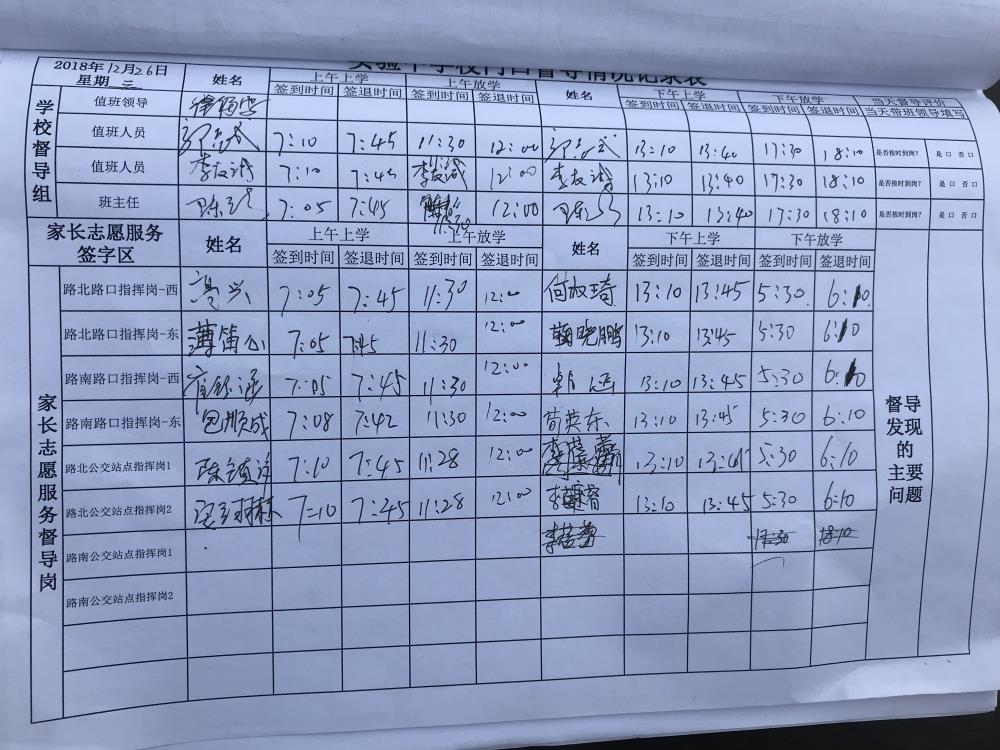 实验中学校门口督导情况记录表
2018年12月26日
星期三 姓名 上午上学 上午放学 姓名 下午上学 下午放学 当天督导评价
签到时间 签退时间 签到时间 签退时间 签到时间 签退时间 签到时间 签退时间 当天带班领导填写
学校督导组
值班领导
值班人员 7:10 7:45 11:30 12:00 13:10 13:40 17:30 18:10 是否按时到岗? 是口 否口
值班人员 李友诚 7:10 7:45 李友诚 11:30 12:00 李友诚 13:10 13:40 17:30 18:10 是否按时到岗? 是口 否口
班主任 7:05 7:45 11:30 12:00 13:10 13:40 17:30 18:10 是否按时到岗? 是口 否口
家长志愿服务签字区 姓名 上午上学 上午放学 姓名 下午上学 下午放学
签到时间 签退时间 签到时间 签退时间 签到时间 签退时间 签到时间 签退时间
家长志愿服务督导岗
路北路口指挥岗-西 高兴 7:05 7:45 11:30 12:0 何淑琦 13:10 13:45 5:30 6:10
路北路口指挥岗-东 7:05 7:45 11:30 12:00 鞠晓鹏 13:10 13:45 5:30 6:10
路南路口指挥岗-西 7:05 7:45 11:30 12:00 13:10 13:45 5:30 6:10
路南路口指挥岗-东 包顺成 7:08 7:42 11:30 12:00 苟英东 13:10 13:45 5:30 6:10
路北公交站点指挥岗1 7:10 7:45 11:28 12:00 13:10 13:45 5:30 6:10
路北公交站点指挥岗2 7:10 7:45 11:28 12:00 13:10 13:45 5:30 6:10
路南公交站点指挥岗1 17:30 18:10
路南公交站点指挥岗2
督导发现的主要问题